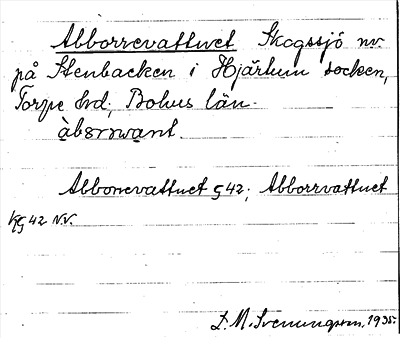 Abborrevattnet Skogssjö nv.
på Stenbacken i Hjärtum socken,
Torpe hd; Bohus län.
àbɘrwant
Abborrevattnet G 42; Abborrvattnet
Kg 42 N.V.
L. M. Svenungsson, 1935.